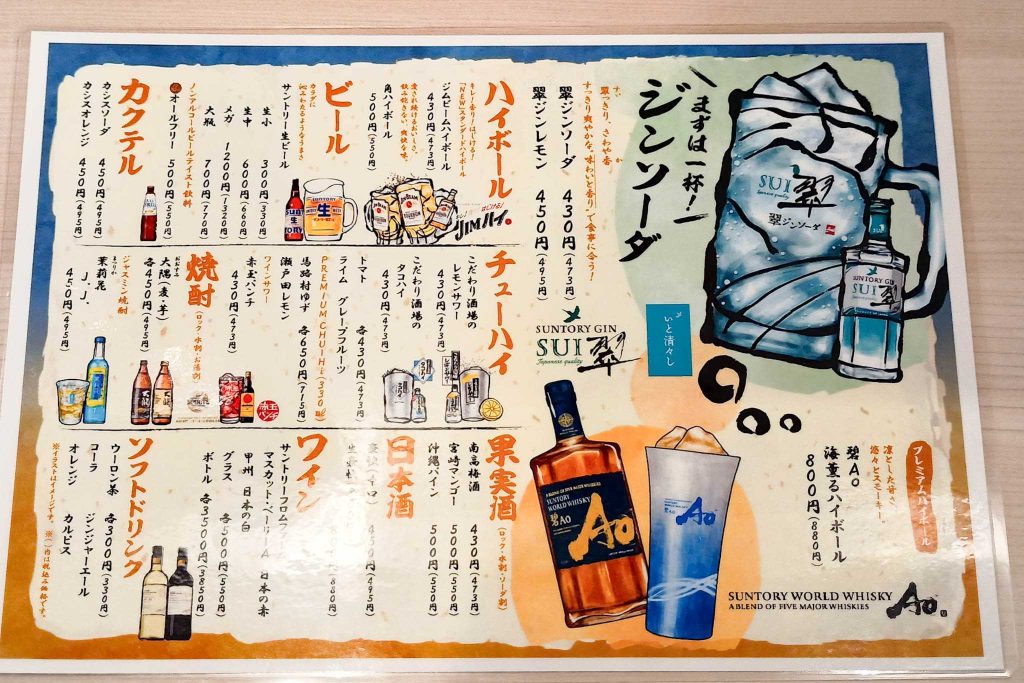 まずは一杯！
ジンソーダ
翠ジンソーダ 430円(473円)
翠ジンレモン 450円(495円)
SUI 翠
Japanese quality
翠ジンソーダ
SUNTORY GIN
SUI 翠
SUNTORY GIN
SUI 翠
Japanese quality
いと清々し
ハイボール
「NEW」スタンダードハイボール
ジムビームハイボール
430円(473円)
愛され続けるおいしさ。
飲み飽きない爽快な味。
角ハイボール
500円(550円)
JIMハイ。
ビール
カラダに
沁みわたるようなうまさ
サントリー生ビール
生小 300円(330円)
生中 600円(660円)
メガ 1200円(1320円)
大瓶 700円(770円)
ノンアルコールビールテイスト飲料
オールフリー 500円(550円)
カクテル
カシスソーダ 450円(495円)
カシスオレンジ 450円(495円)
チューハイ
こだわり酒場の
レモンサワー
430円(473円)
こだわり酒場の
タコハイ
430円(473円)
トマト
ライム グレープフルーツ
各430円(473円)
PREMIUM CHUIHI(330ml)
馬路村ゆず
瀬戸田レモン
各650円(715円)
ワインサワー
赤玉パンチ
430円(473円)
焼酎
(ロック・水割・お湯割)
大隅(麦・芋)
各450円(495円)
ジャスミン焼酎
茉莉花
J.J.
450円(495円)
果実酒
(ロック・水割・ソーダ割)
南高梅酒 430円(473円)
宮崎マンゴー 500円(550円)
沖縄パイン 500円(550円)
日本酒
ワイン
サントリーフロムファーム
マスカット・ベーリーA 日本の赤
甲州 日本の白
グラス 各500円(550円)
ボトル 各3500円(3850円)
ソフトドリンク
各300円(330円)
ウーロン茶
コーラ ジンジャーエール
オレンジ カルピス
※イラストはイメージです。 ※( )内は税込み価格です。
プレミアムハイボール
凛とした甘さ
悠々とスモーキー。
碧Ao
海薫るハイボール
800円(880円)
A BLEND OF FIVE MAJOR WHISKIES
SUNTORY
WORLD WHISKY
碧AO
Ao
Ao
SUNTORY WORLD WHISKY
A BLEND OF FIVE MAJOR WHISKIES
Ao